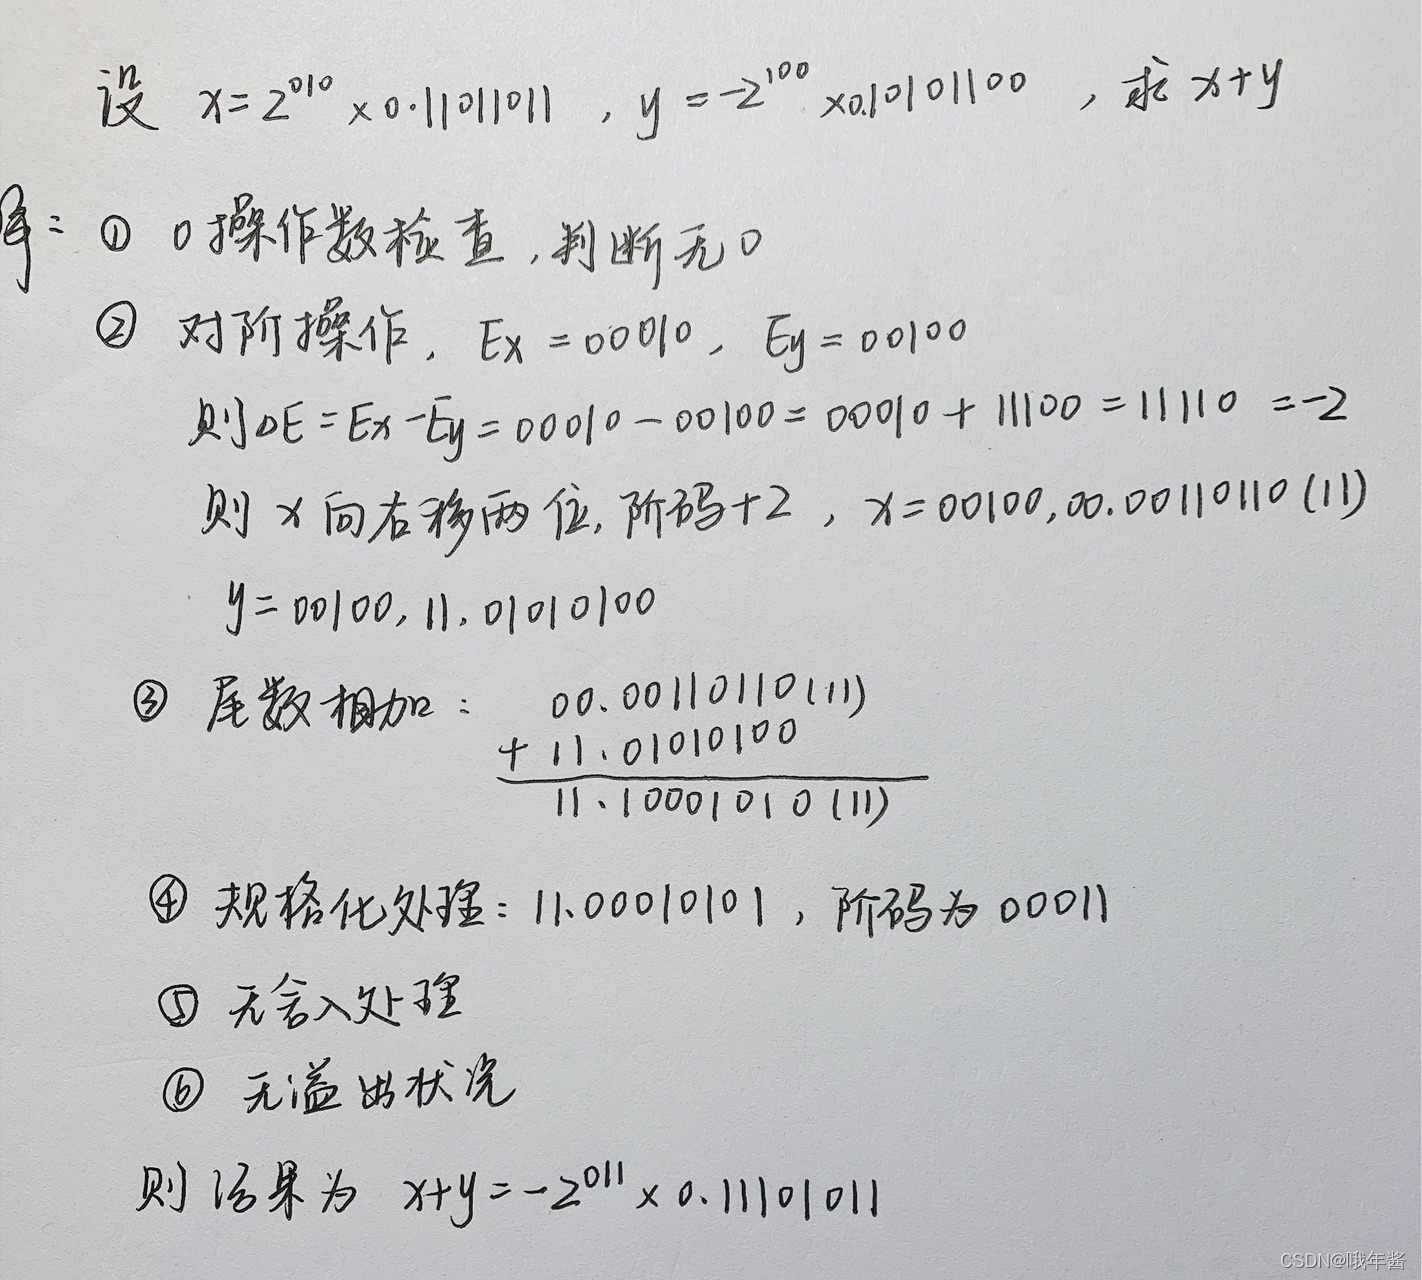 设 x=2^010 ×0.11011011 , y=-2^100 ×0.10101100 , 求 x+y
解: ① 0操作数检查,判断无0
② 对阶操作, Ex=00010, Ey=00100
则ΔE=Ex-Ey=00010-00100=00010+11100=11110=-2
则 x 向右移两位,阶码+2, x=00100,00.00110110(11)
y=00100,11.01010100
③ 尾数相加: 00.00110110(11)
+ 11.01010100
11.10001010(11)
④ 规格化处理:11.00010101,阶码为00011
⑤ 无舍入处理
⑥ 无溢出状况
则结果为 x+y=-2^011 × 0.11101011
CSDN@哦年酱